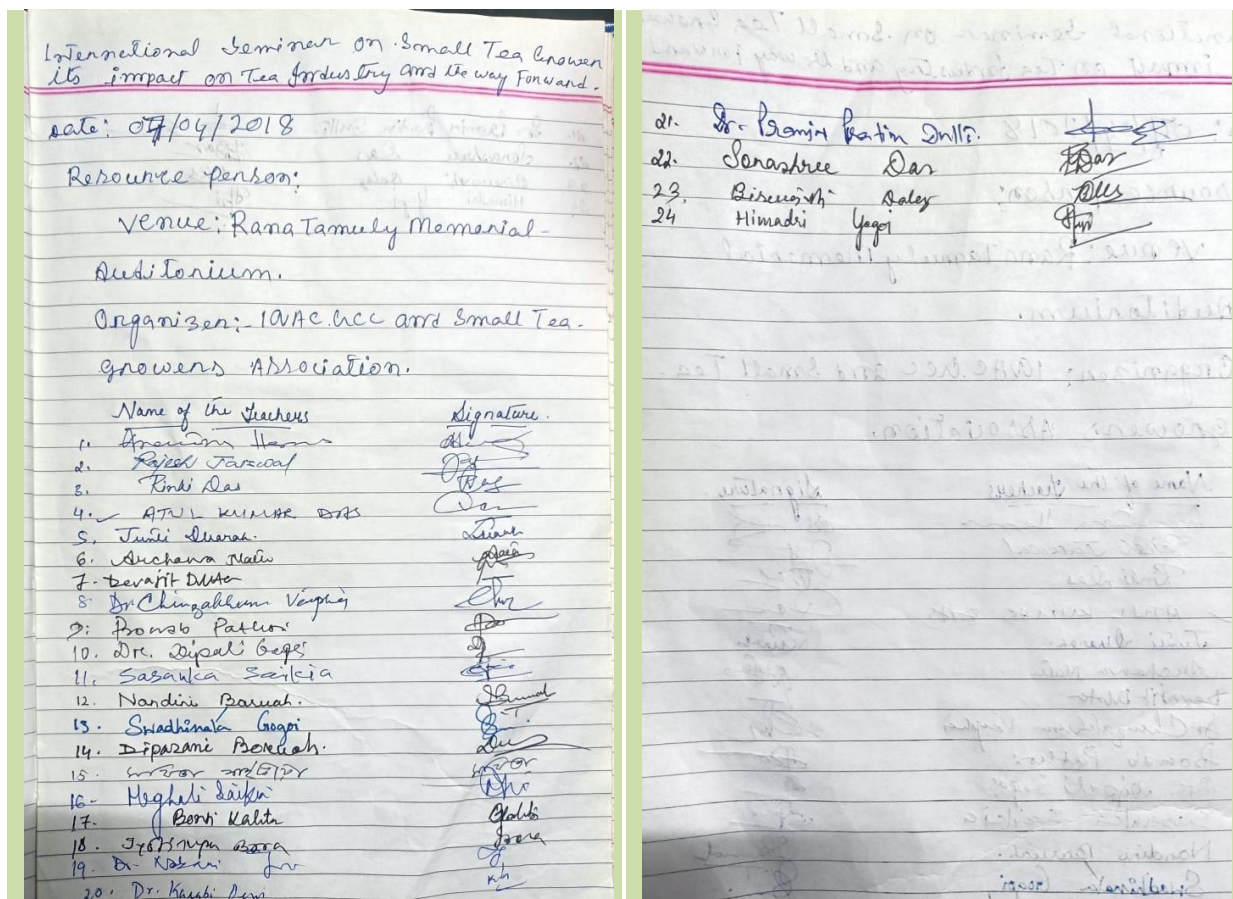 International Seminar on Small Tea Grower
its impact on Tea Industry and the way Forward.
Date: 07/04/2018
Resource person:
Venue: Rana Tamuly Memorial -
Auditorium.
Organizer:- IQAC.GCC and Small Tea.
growers Association.
Name of the Teachers Signature.
1.
2. Rajesh Jaiswal
3. Rinki Das Das
4. ATUL KUMAR DAS Das
5. Junti
6. Archana
7. Devajit Dutta
8. Dr Chingakham
9. Pathori
10. Dr. Dipali Gogoi
11. Sasanka Saikia
12. Nandini Baruah.
13. Swadhinata Gogoi
14. Dipazani Boruah.
15.
16- Meghali Saikia
17. Bonti Kalita
18. Jyotsrupa Bora Bora
19. Dr.
20. Dr. Karabi Devi
21. Dr.
22. Sonashree Das Das
23. Daley
24 Himadri Gogoi